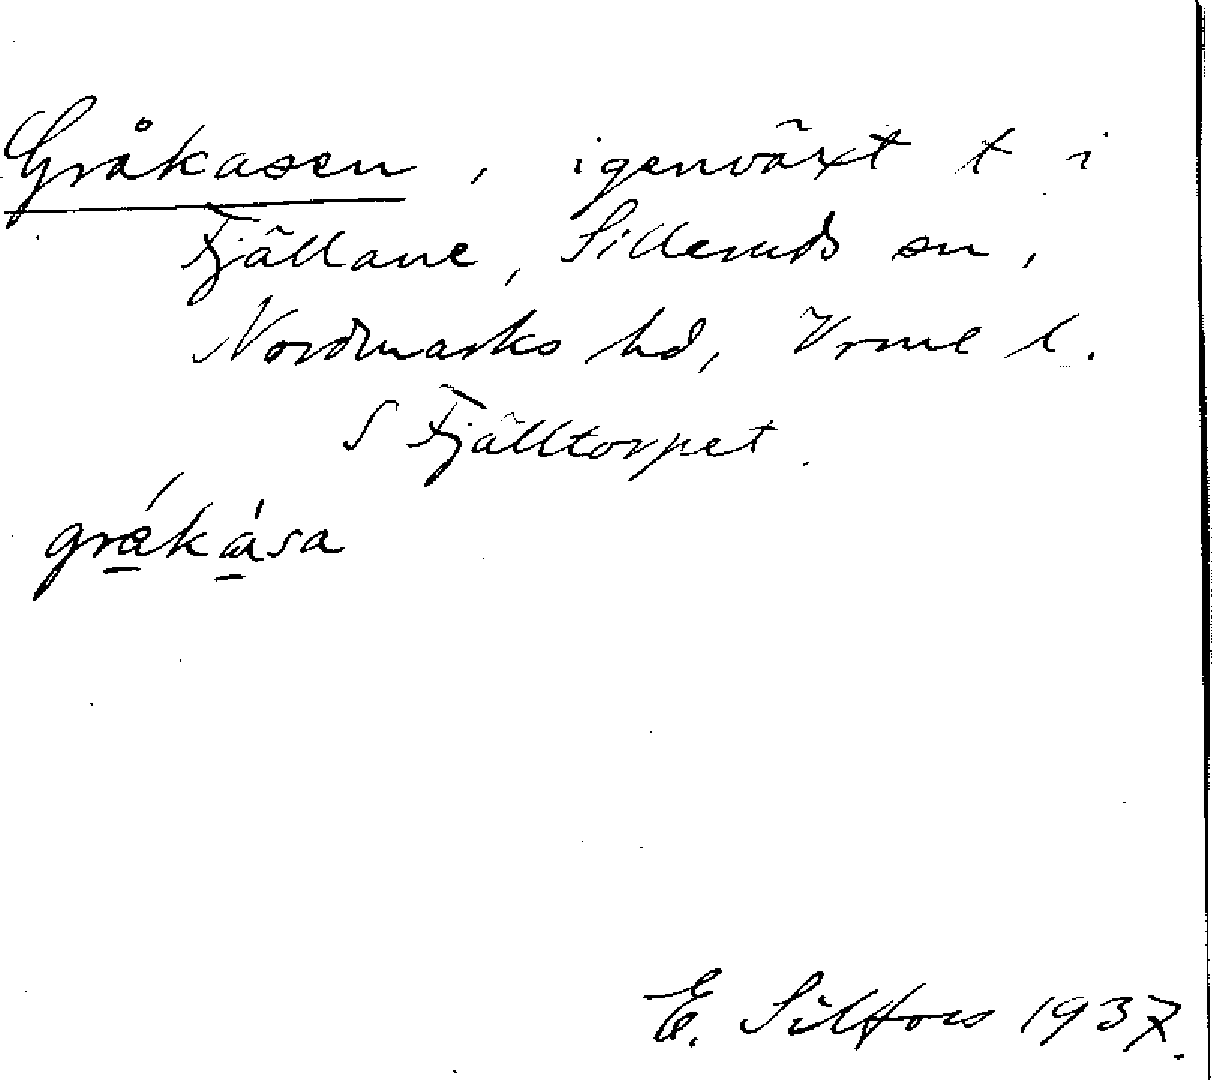 Gråkasen, igenväxt t i
Fjällane, Silleruds sn,
Nordmarks hd, Vrml l.
S Fjälltorpet.
E. Silfors 1937.